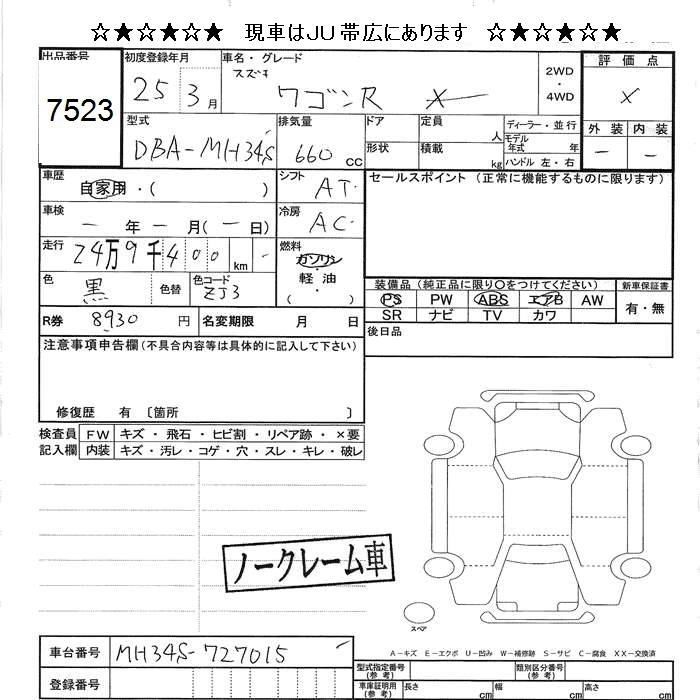 ☆★☆★☆★ 現車はJU帯広にあります ☆★☆★☆★
出品番号 初度登録年月 車名・グレード 評価点
スズキ
7523 25 3月 ワゴンR X 2WD・4WD X
型式 排気量 ドア 定員 人 ディーラー・並行 外装 内装
DBA-MH34S 660 cc 形状 積載 kg モデル年式 年 - -
ハンドル 左・右
車歴 自家用・( ) シフト AT セールスポイント(正常に機能するものに限ります)
車検 - 年 - 月(- 日) 冷房 AC
走行 24万9千400 km 燃料 ガソリン・軽油( )
色 黒 色替 色コード ZJ3 装備品(純正品に限り○をつけてください) 新車保証書
PS PW ABS エアB AW 有・無
R券 8930円 名変期限 月 日 SR ナビ TV カワ
後日品
注意事項申告欄(不具合内容等は具体的に記入して下さい)
修復歴 有 〔箇所 〕
検査員 FW キズ・飛石・ヒビ割・リペア跡・×要
記入欄 内装 キズ・汚レ・コゲ・穴・スレ・キレ・破レ
ノークレーム車
スペア
A-キズ E-エクボ U-凹み W-補修跡 S-サビ C-腐食 XX-交換済
車台番号 MH34S-727015
型式指定番号(参考) 類別区分番号(参考)
登録番号 車庫証明用(参考) 長さ cm 幅 cm 高さ cm